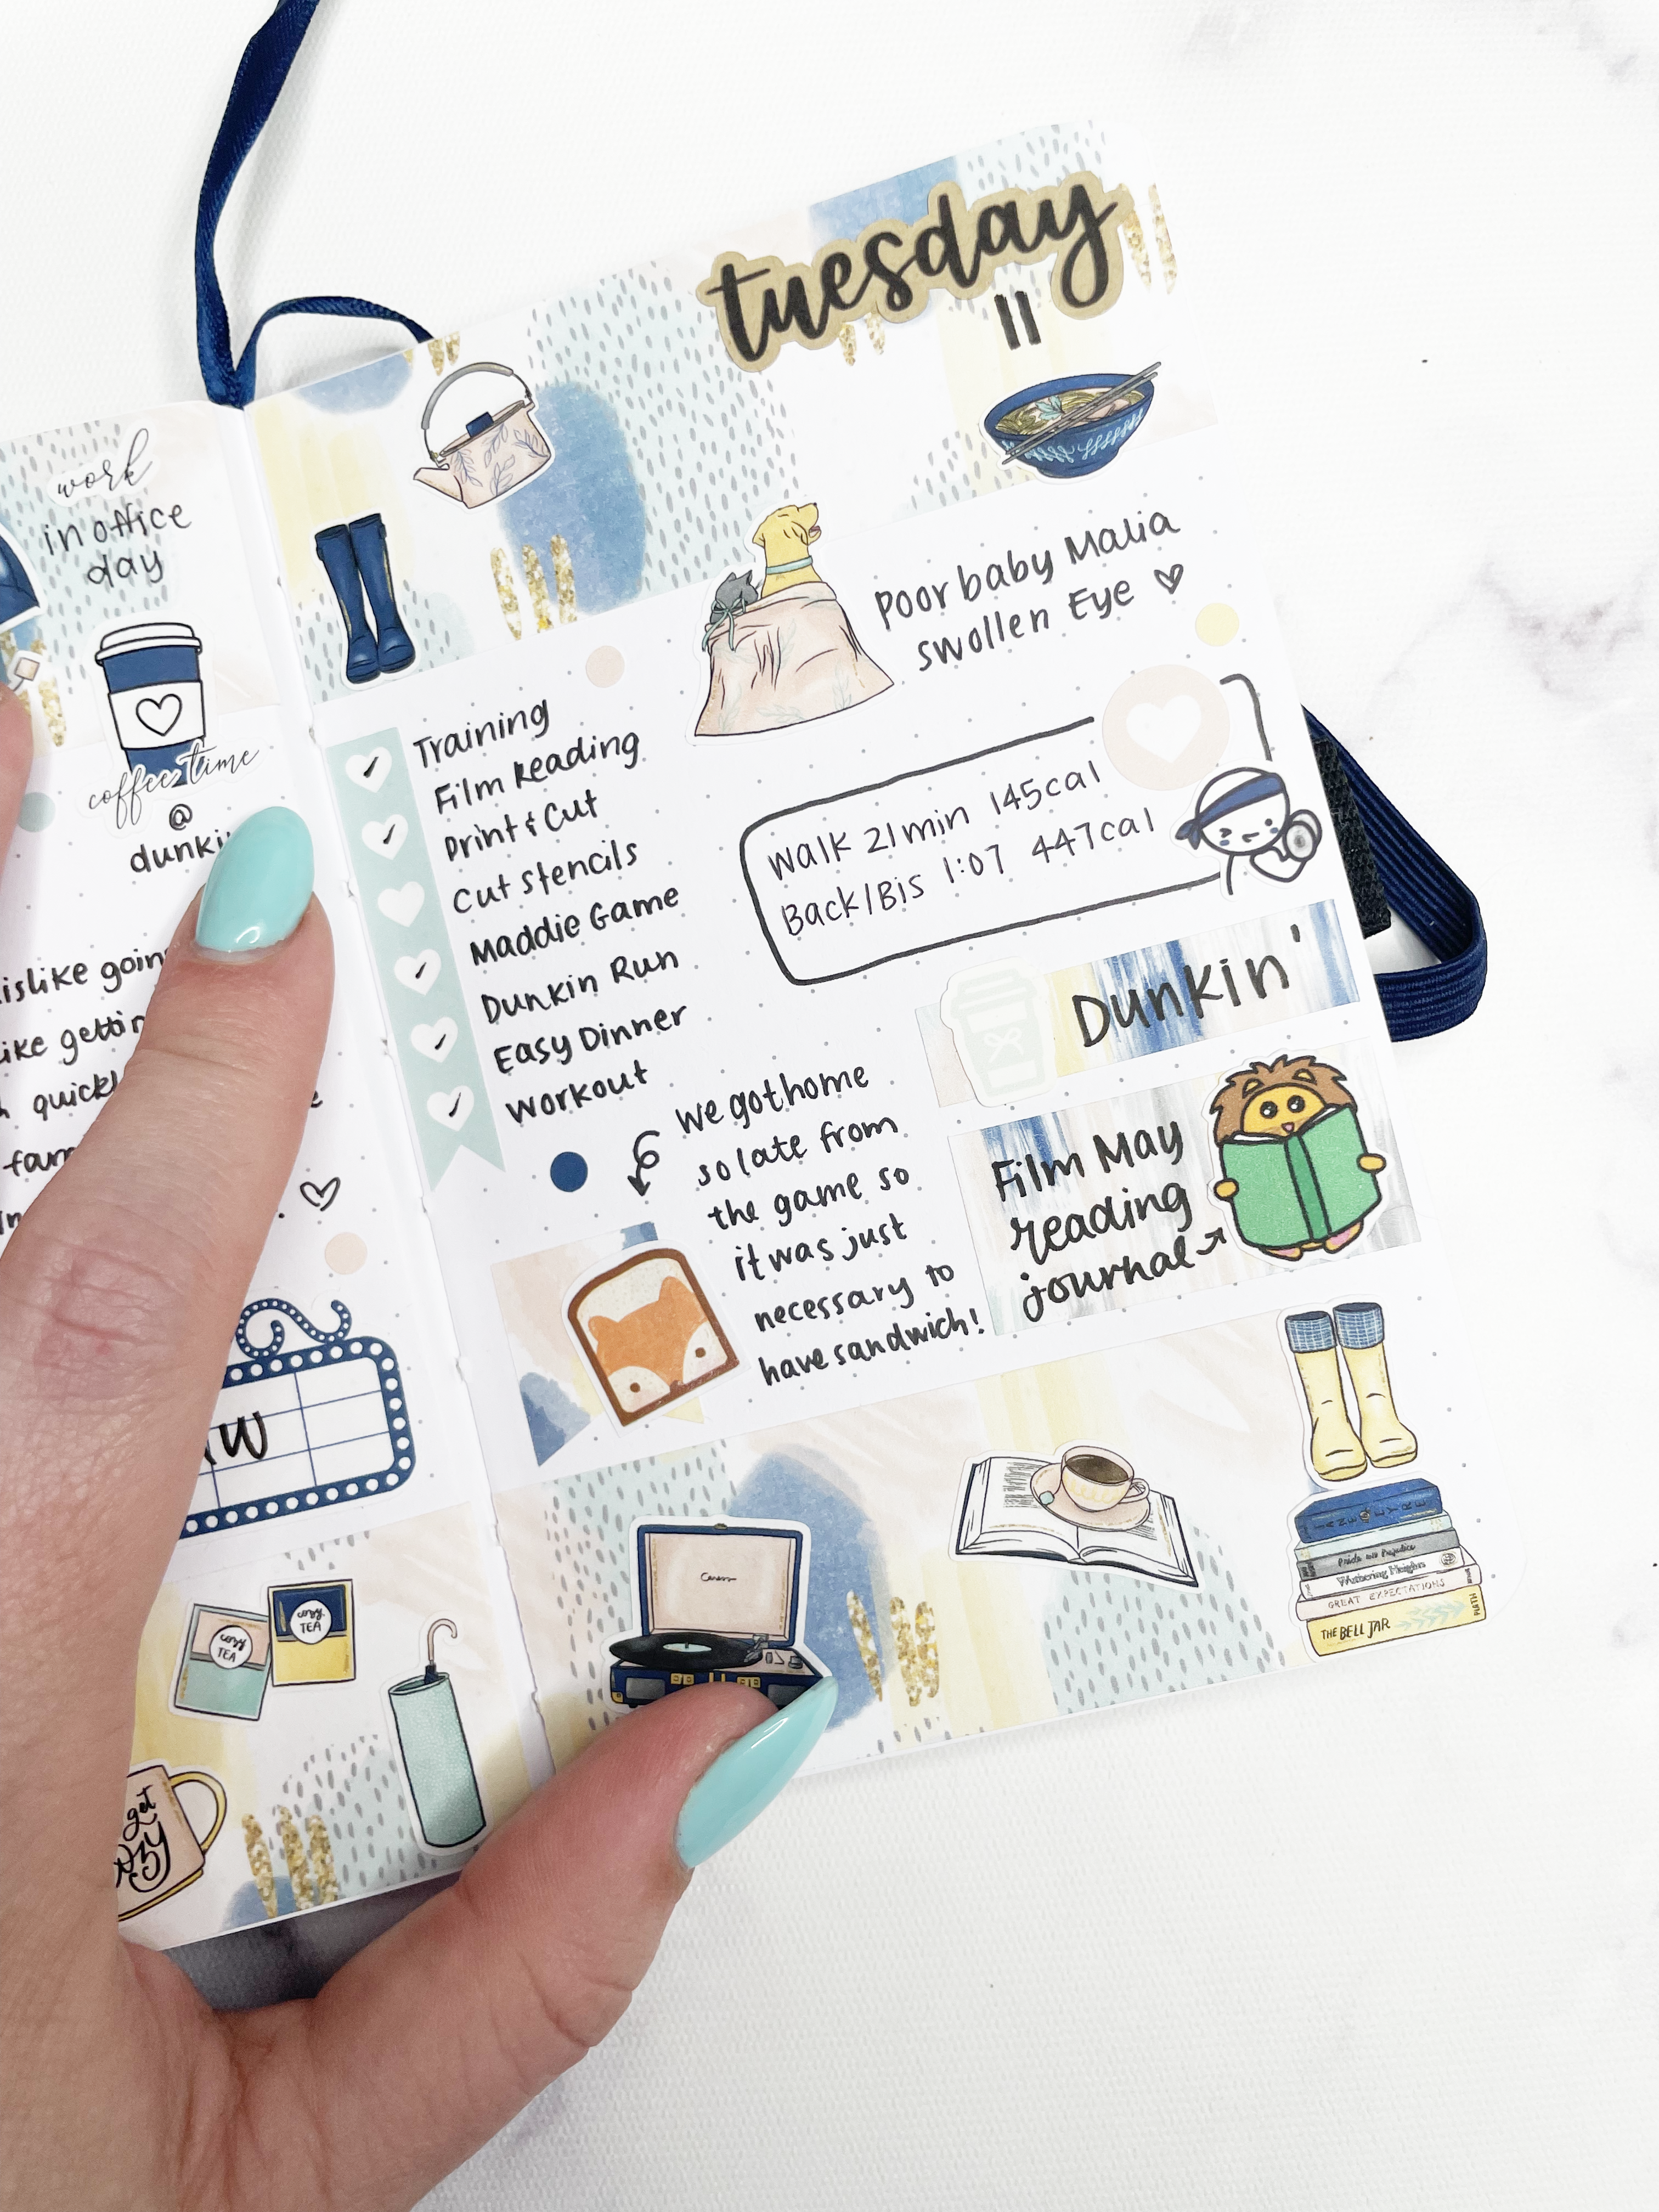 work
in office
day
coffee time
@
islike
quick
W
cozy
TEA
cozy
TEA
get
tuesday
11
Poor baby Malia
swollen Eye ♡
Training
Film Reading
Print & Cut
Cut Stencils
Maddie Game
Dunkin Run
Easy Dinner
Workout
Walk 21min 145cal
Back/Bis 1:07 447cal
Dunkin'
We got home
so late from
the game so
it was just
necessary to
have sandwich!
Film May
reading
journal
JANE EYRE
Pride and Prejudice
Wuthering Heights
GREAT EXPECTATIONS
THE BELL JAR
PLATH